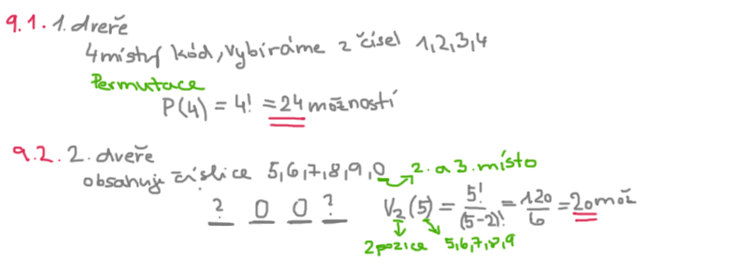 9.1. 1. dveře
4místný kód, vybíráme z čísel 1,2,3,4
Permutace
P(4) = 4! = 24 možností
9.2. 2. dveře
obsahuje číslice 5,6,7,8,9,0 2. a 3. místo
? 0 0 ? V₂(5) = 5!/(5-2)! = 120/6 = 20 mož
2 pozice 5,6,7,8,9